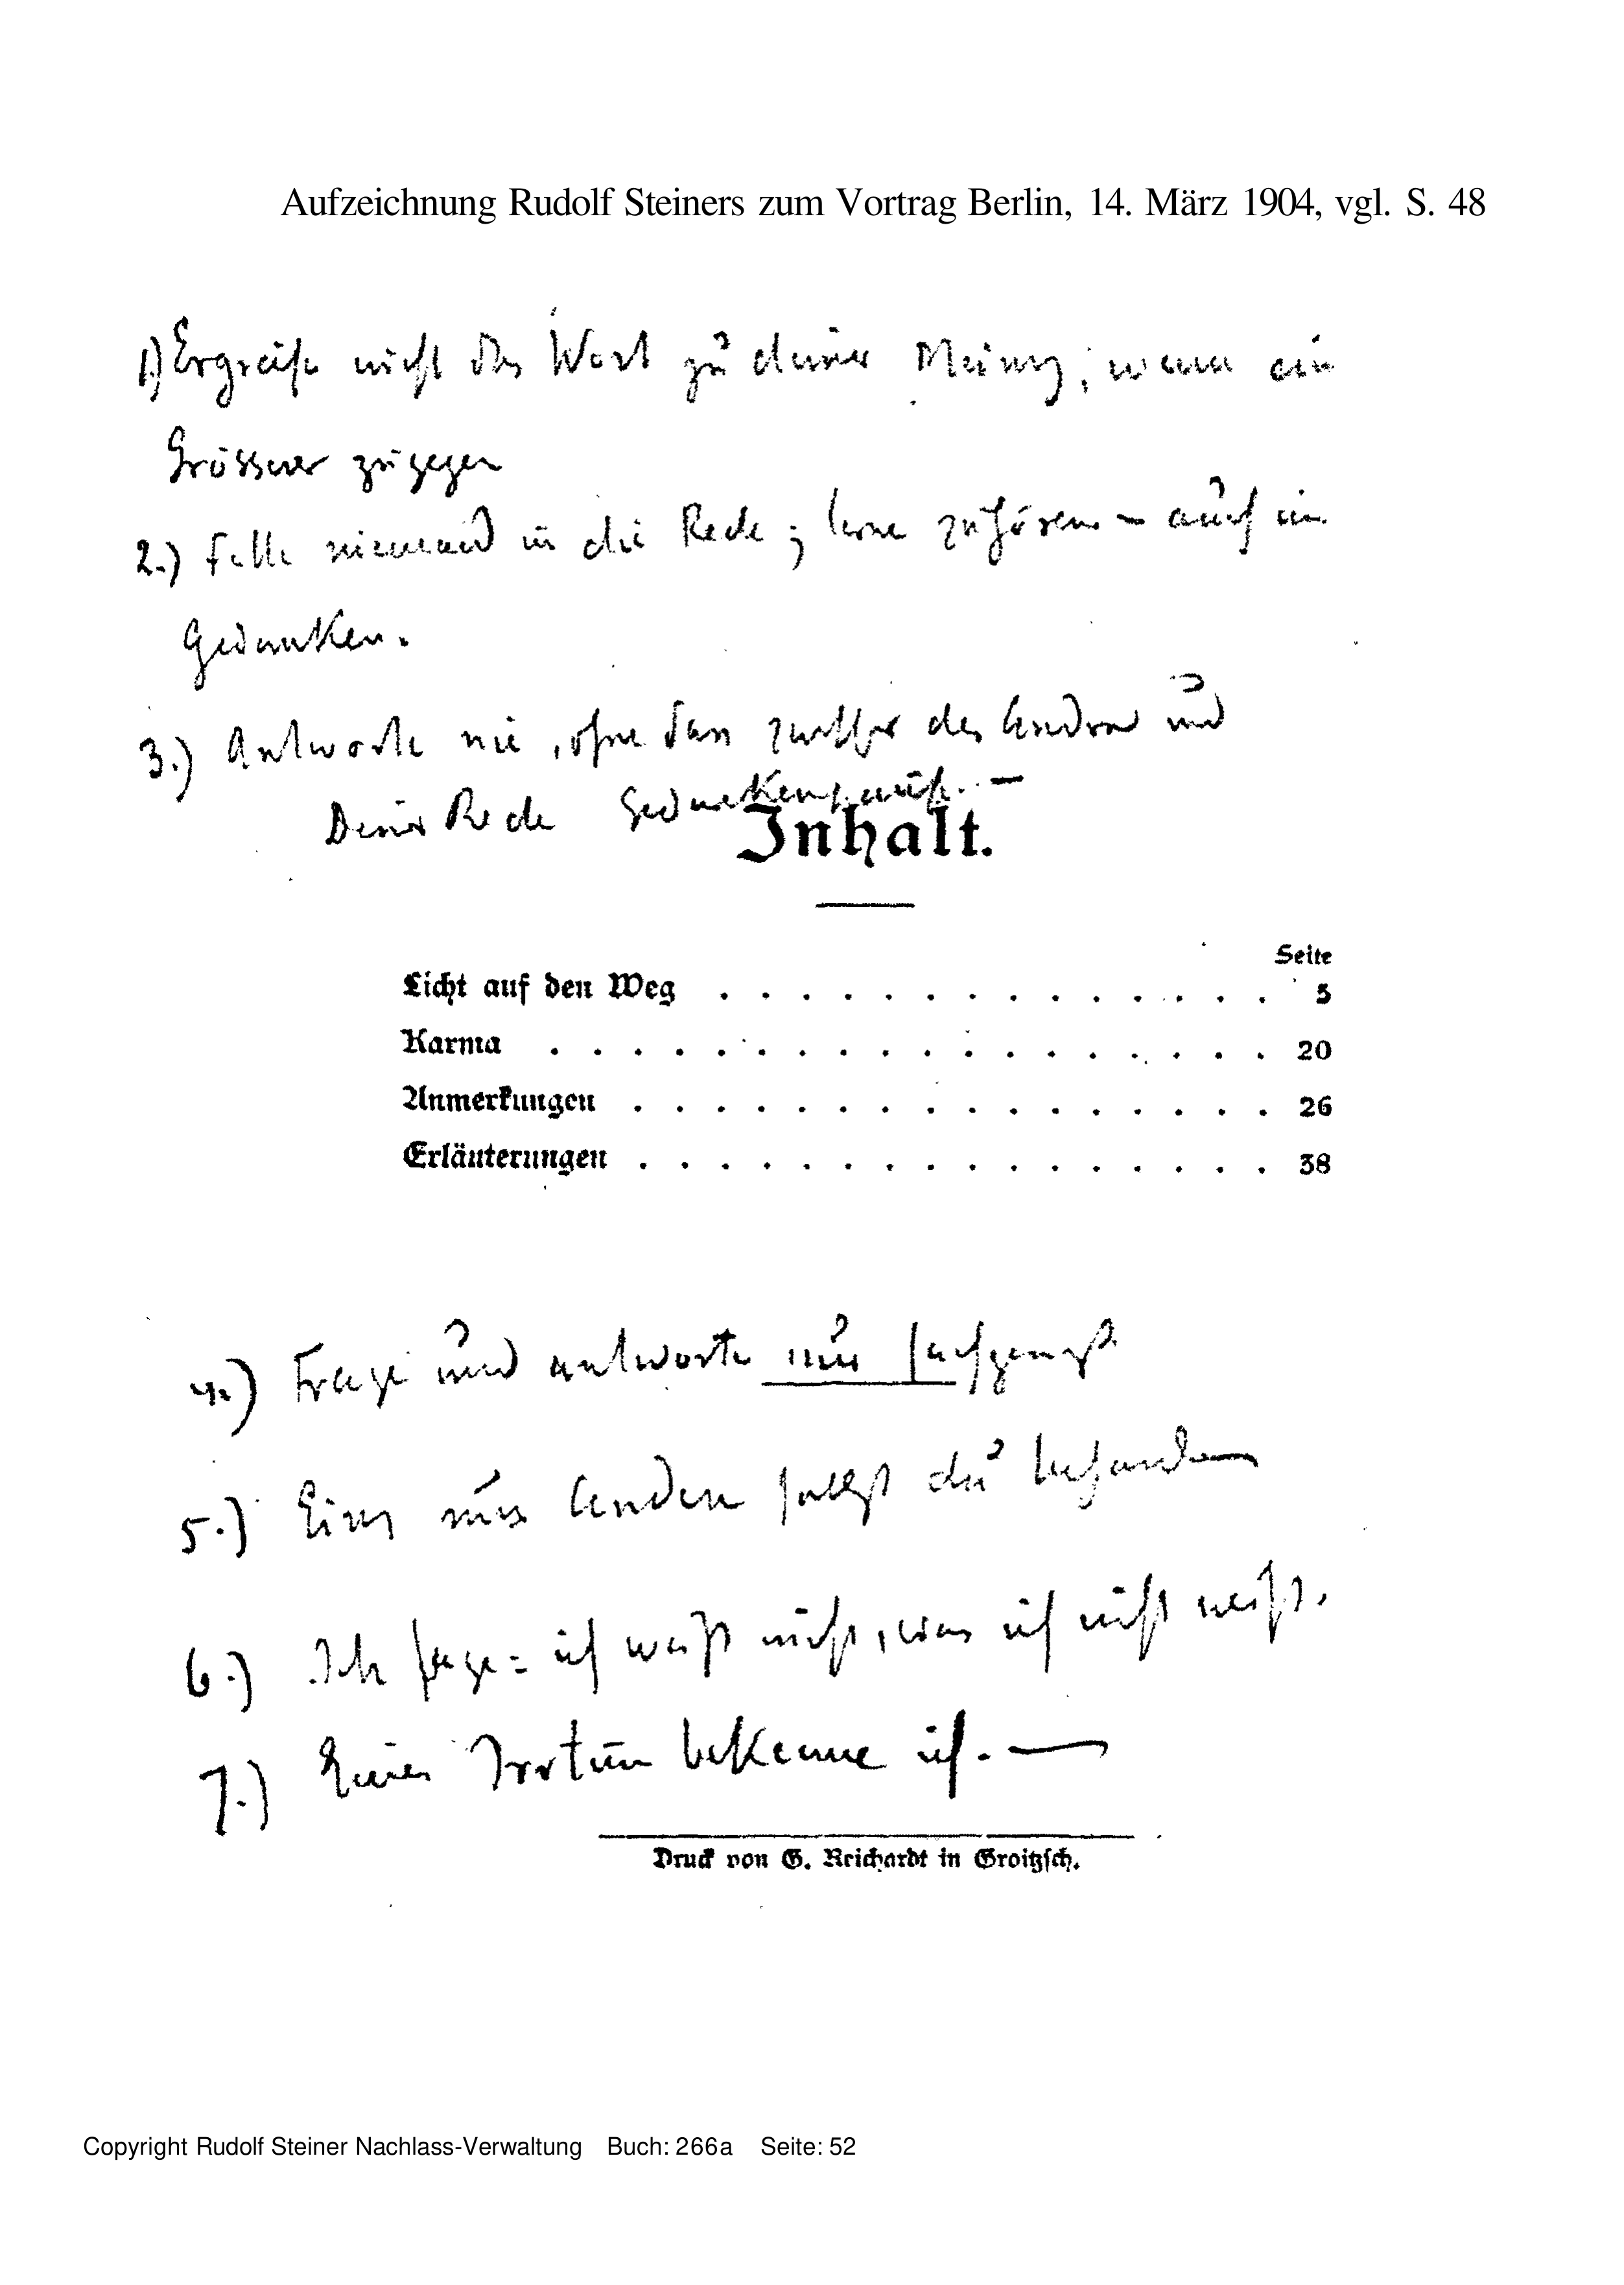 Aufzeichnung Rudolf Steiners zum Vortrag Berlin, 14. März 1904, vgl. S. 48
1.) Ergreife nicht das Wort zu deiner Meinung, wenn ein
Grösserer zugegen
2.) Falle niemand in die Rede; lerne zuhören – auch in
Gedanken.
3.) Antworte nie, ohne dass zwischen des Andern und
Deiner Rede Gedankenpause. –
Inhalt.
Seite
Licht auf den Weg . . . . . . . . . . . . . . 5
Karma . . . . . . . . . . . . . . . . . . 20
Anmerkungen . . . . . . . . . . . . . . . . 26
Erläuterungen . . . . . . . . . . . . . . . . 38
4.) Frage und antworte nur sachgemäß
5.) Eines andern sollst du
6.) Ich sage: ich weiß nicht, was ich nicht weiß.
7.) Einen Irrtum bekenne ich. —
Druck von G. Reichardt in Groitzsch.
Copyright Rudolf Steiner Nachlass-Verwaltung Buch: 266a Seite: 52